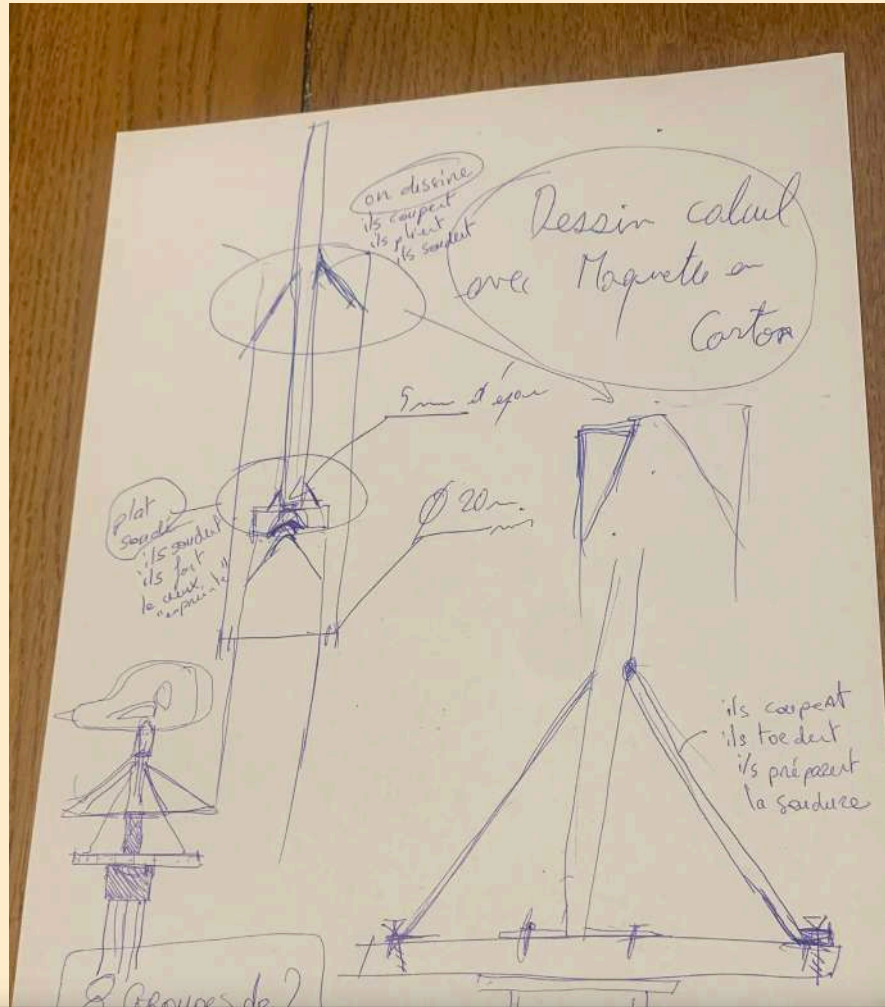 on dessine
ils coupent
ils plient
ils soudent
Dessin calcul
avec Maquette en
Carton
5mm d'épau
Ø 20m
plat
soudé
ils soudent
ils font
le creux
"empreinte"
ils coupent
ils tordent
ils préparent
la soudure
8 Groupes de 2